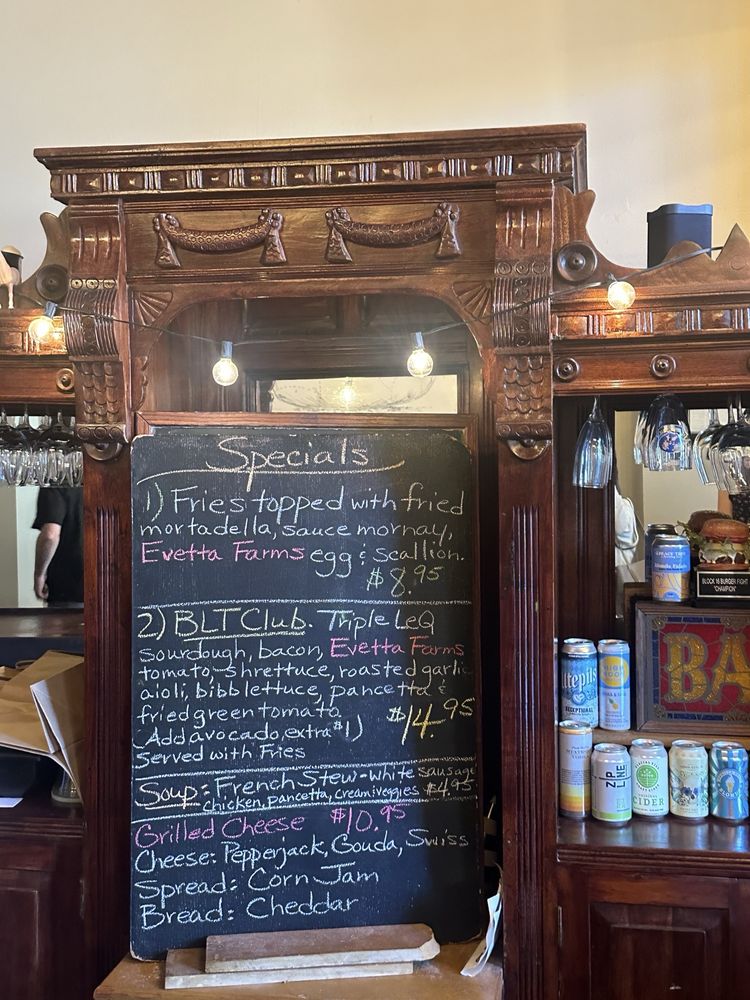 Specials
1) Fries topped with fried
mortadella, sauce mornay,
Evetta Farms egg & scallion.
$8.95
2) BLT Club. Triple LeQ
sourdough, bacon, Evetta Farms
tomato, shrettuce, roasted garlic
aioli, bibb lettuce, pancetta &
fried green tomato
(Add avocado, extra $1) $14.95
Served with Fries
Soup: French Stew-white sausage
chicken, pancetta, cream & veggies $4.95
Grilled Cheese $10.95
Cheese: Pepperjack, Gouda, Swiss
Spread: Corn Jam
Bread: Cheddar
BLOCK 16 BURGER FIGHT
"CHAMPION"
BA
HIGH
NOON
ZIP
LINE
CIDER